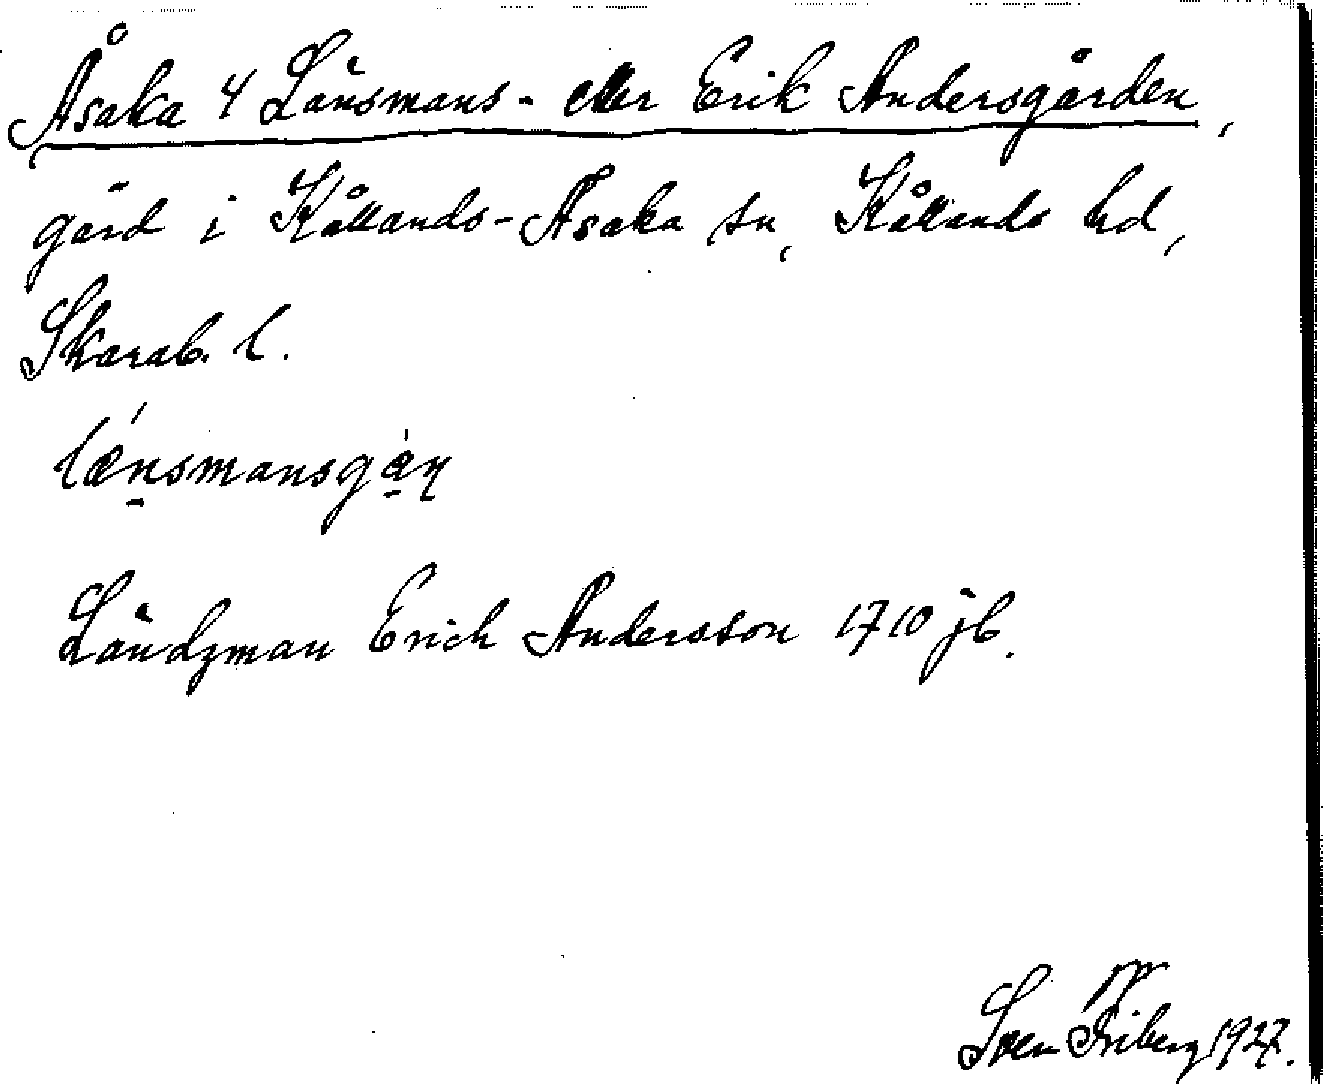 Åsaka 4 Länsmans- eller Erik Andersgården,
gård i Kållands-Åsaka sn, Kållands hd,
Skarab. l.
lænsmansgaɳ
Ländzman Erich Andersson 1710 jb.
Sven Friberg 1927.